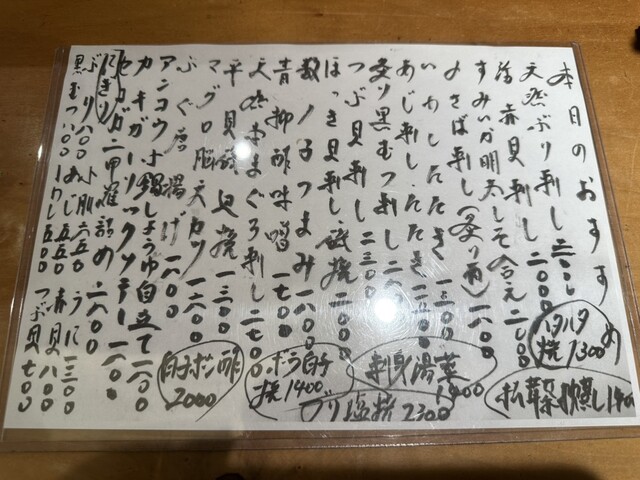 本日のおすすめ
天然ぶり刺し 二二〇〇
活赤貝刺し 二〇〇〇
すみいか明太しそ合え 二〇〇〇
〆さば刺し(炙り有) 一八〇〇
いわしたたき 一三〇〇
あじ刺し、たたき
炙り黒むつ刺し 二三〇〇
つぶ貝刺し
ほっき貝刺し、磯焼 二〇〇〇
数ノ子つまみ 一八〇〇
青柳酢味噌 一七〇〇
天然本まぐろ刺し 二七〇〇
平貝 磯辺焼 一三〇〇
マグロ脳天カツ 一六〇〇
ふぐ唐揚げ 一八〇〇
アンコウ小鍋しょうゆ自立て 一八〇〇
カキガーリックソテー 一八〇〇
セコガニ甲羅詰め 二八〇〇
にぎり
ぶり 八〇〇 小肌 六五〇 うに 一三〇〇
黒むつ 八〇〇 あじ 五五〇 赤貝 八〇〇
いわし 五〇〇 つぶ貝 七〇〇
ハタハタ
焼 1300
松茸茶碗蒸し 14
湯葉
1400
ブリ塩焼 2300
ボラ白子
焼 1400
白子ポン酢
2000